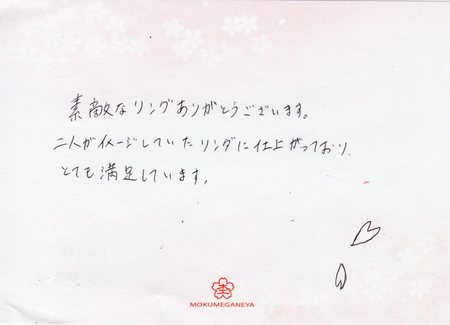 素敵なリングありがとうございます。
二人がイメージしていたリングに仕上がっており
とても満足しています。
MOKUMEGANEYA